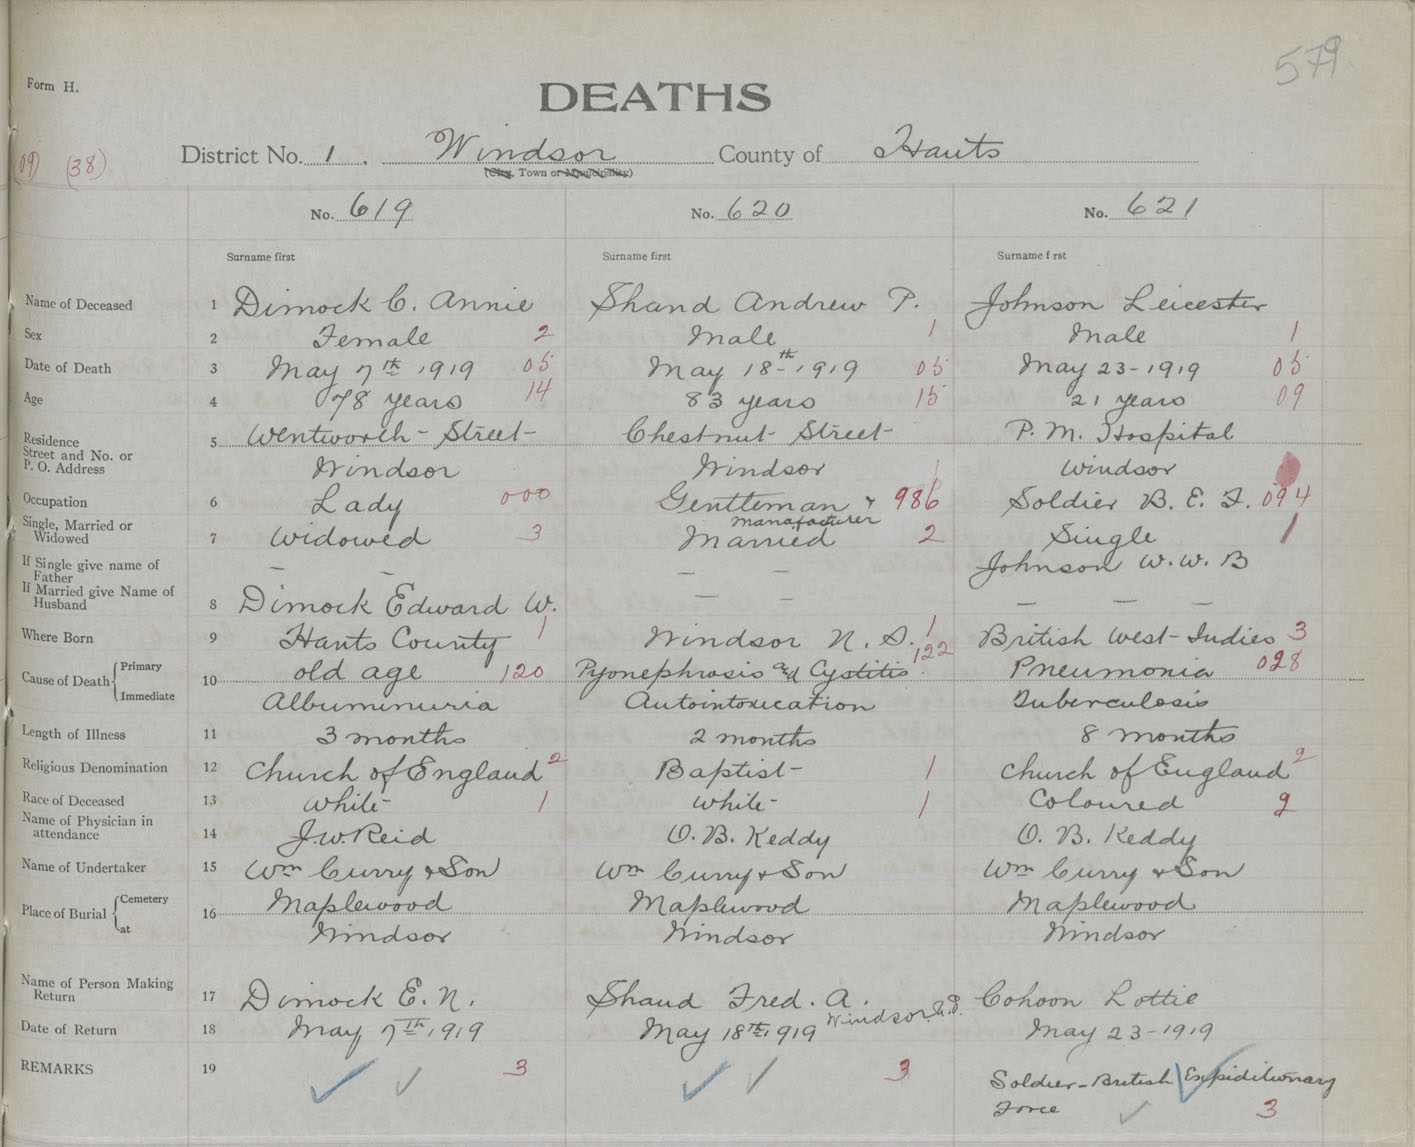 579
Form H.
DEATHS
(09) (38)
District No. 1. Windsor County of Hants
(City, Town or Municipality)
No. 619 No. 620 No. 621
Surname first Surname first Surname f rst
Name of Deceased 1 Dimock C. Annie Shand Andrew P. Johnson Leicester
Sex 2 Female 2 Male 1 Male 1
Date of Death 3 May 7th 1919 05 May 18th 1919 05 May 23-1919 05
Age 4 78 years 14 83 years 15 21 years 09
Residence
Street and No. or
P. O. Address
5 Wentworth-Street- Chestnut Street- P. M. Hospital
Windsor Windsor 1 Windsor
Occupation 6 Lady 000 Gentleman & 986 Soldier B. E. F. 094
manafacturer
Single, Married or
Widowed
7 Widowed 3 Married 2 Single 1
If Single give name of
Father
- - - - Johnson W. W. B
If Married give Name of
Husband
8 Dimock Edward W. - - - - -
Where Born 9 Hants County 1 Windsor N. S. 1 British West-Indies 3
Cause of Death { Primary
Immediate
10 old age 120 Pyonephrosis and Cystitis 122 Pneumonia 028
Albuminuria Autointoxication Tuberculosis
Length of Illness 11 3 months 2 months 8 months
Religious Denomination 12 Church of England 2 Baptist- 1 Church of England 2
Race of Deceased 13 White 1 White- 1 Coloured 2
Name of Physician in
attendance
14 J. W. Reid O. B. Keddy O. B. Keddy
Name of Undertaker 15 Wm Curry & Son Wm Curry & Son Wm Curry & Son
Place of Burial { Cemetery
at
16 Maplewood Maplewood Maplewood
Windsor Windsor Windsor
Name of Person Making
Return
17 Dimock E. N. Shand Fred. A. Cohoon Lottie
Windsor N.S.
Date of Return 18 May 7th 1919 May 18th 1919 May 23-1919
REMARKS 19 3 3 Soldier-British Expiditionary
Force 3